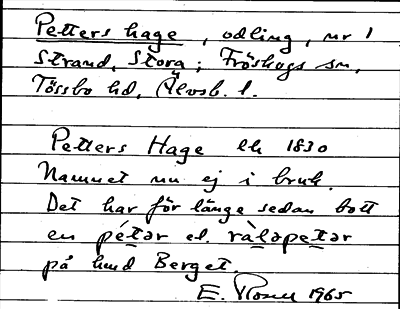 Petters hage, odling, nr 1
Strand, Stora; Fröskogs sn,
Tössbo hd, Älvsb. l.
Petters Hage lk 1830
Namnet nu ej i bruk.
Det har för länge sedan bott
en pétər el. ràləpetər
på hmd Berget.
E. Rosell 1965